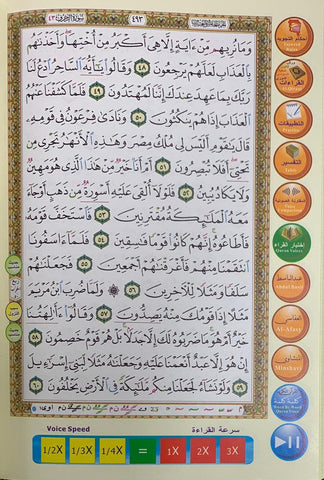 سورة الزخرف ٤٣
٤٩٣
وَمَا نُرِيهِم مِّنْ ءَايَةٍ إِلَّا هِىَ أَكْبَرُ مِنْ أُخْتِهَا وَأَخَذْنَٰهُم
بِٱلْعَذَابِ لَعَلَّهُمْ يَرْجِعُونَ ٤٨ وَقَالُوا۟ يَٰٓأَيُّهَ ٱلسَّاحِرُ ٱدْعُ لَنَا
رَبَّكَ بِمَا عَهِدَ عِندَكَ إِنَّنَا لَمُهْتَدُونَ ٤٩ فَلَمَّا كَشَفْنَا عَنْهُمُ
ٱلْعَذَابَ إِذَا هُمْ يَنكُثُونَ ٥٠ وَنَادَىٰ فِرْعَوْنُ فِى قَوْمِهِۦ
قَالَ يَٰقَوْمِ أَلَيْسَ لِى مُلْكُ مِصْرَ وَهَٰذِهِ ٱلْأَنْهَٰرُ تَجْرِى مِن
تَحْتِىٓ أَفَلَا تُبْصِرُونَ ٥١ أَمْ أَنَا۠ خَيْرٌ مِّنْ هَٰذَا ٱلَّذِى هُوَ مَهِينٌ
وَلَا يَكَادُ يُبِينُ ٥٢ فَلَوْلَآ أُلْقِىَ عَلَيْهِ أَسْوِرَةٌ مِّن ذَهَبٍ أَوْ جَآءَ
مَعَهُ ٱلْمَلَٰٓئِكَةُ مُقْتَرِنِينَ ٥٣ فَٱسْتَخَفَّ قَوْمَهُۥ
فَأَطَاعُوهُ إِنَّهُمْ كَانُوا۟ قَوْمًا فَٰسِقِينَ ٥٤ فَلَمَّآ ءَاسَفُونَا
ٱنتَقَمْنَا مِنْهُمْ فَأَغْرَقْنَٰهُمْ أَجْمَعِينَ ٥٥ فَجَعَلْنَٰهُمْ
سَلَفًا وَمَثَلًا لِّلْءَاخِرِينَ ٥٦ وَلَمَّا ضُرِبَ ٱبْنُ مَرْيَمَ
مَثَلًا إِذَا قَوْمُكَ مِنْهُ يَصِدُّونَ ٥٧ وَقَالُوٓا۟ ءَأَٰلِهَتُنَا
خَيْرٌ أَمْ هُوَ مَا ضَرَبُوهُ لَكَ إِلَّا جَدَلًۢا بَلْ هُمْ قَوْمٌ خَصِمُونَ ٥٨
إِنْ هُوَ إِلَّا عَبْدٌ أَنْعَمْنَا عَلَيْهِ وَجَعَلْنَٰهُ مَثَلًا لِّبَنِىٓ إِسْرَٰٓءِيلَ
٥٩ وَلَوْ نَشَآءُ لَجَعَلْنَا مِنكُم مَّلَٰٓئِكَةً فِى ٱلْأَرْضِ يَخْلُفُونَ ٦٠
أحكام التجويد
Tajweed Rules
القراءات
Al-Qiraat
التطبيقات
Practise
التفسير
Tafseer
Voice comparison
إختيار القراء
Quran Voices
عبدالباسط
Abdul Basit
العفاسي
Al-Afasy
المنشاوي
Minshawi
كلمة كلمة
Word By Word
Quran Voice
Voice Speed
سرعة القراءة
1/2X
1/3X
1/4X
=
1X
2X
3X